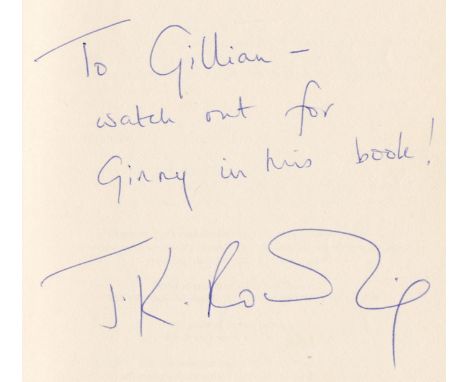 To Gillian –
watch out for
Ginny in this book!
J.K. Rowling